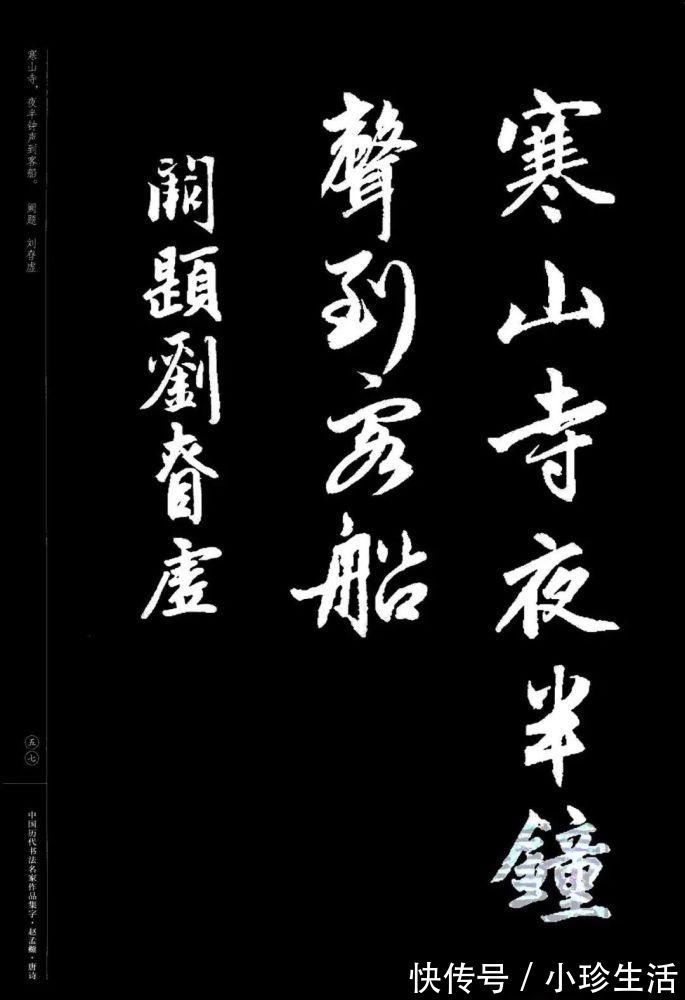 寒山寺夜半鐘
聲到客船
闕題劉眘虛
寒山寺，夜半钟声到客船。 阙题 刘眘虚
五七
中国历代书法名家作品集字·赵孟頫·唐诗
快传号 / 小珍生活